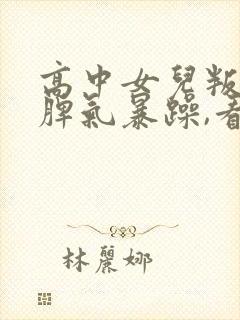 高中女兒叛
脾氣暴躁,看
林麗娜